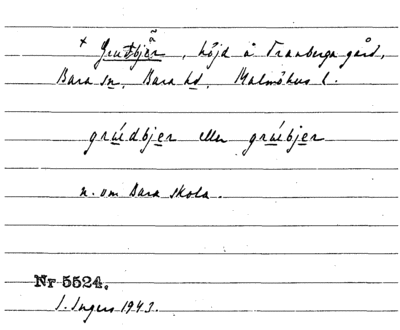 + Grudbjär, höjd å Tranberga gård,
Bara sn, Bara hd, Malmöhus l.
gruedbjer eller gruebjer
n. om Bara skola.
Nr 5524.
I. Ingers 1943.